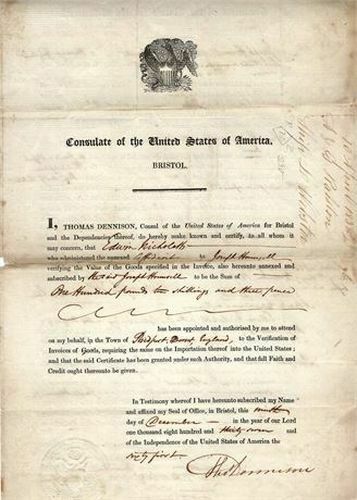 Consulate of the United States of America,
BRISTOL.
I, THOMAS DENNISON, Consul of the United States of America for Bristol
and the Dependencies thereof, do hereby make known and certify, to all whom it
may concern, that Edwin Nicholetts
who administered the annexed Affidavit to Joseph Hounsell
verifying the Value of the Goods specified in the Invoice, also hereunto annexed and
subscribed by the said Joseph Hounsell to be the Sum of
One Hundred pounds ten shillings and three pence
has been appointed and authorised by me to attend
on my behalf, in the Town of Bridport Dorset England, to the Verification of
Invoices of Goods, requiring the same on the Importation thereof into the United States;
and that the said Certificate has been granted under such Authority, and that full Faith and
Credit ought thereunto be given.
In Testimony whereof I have hereunto subscribed my Name
and affixed my Seal of Office, in Bristol, this ninth
day of December in the year of our Lord
one thousand eight hundred and thirty seven and
of the Independence of the United States of America the
sixty first.
Tho Dennison